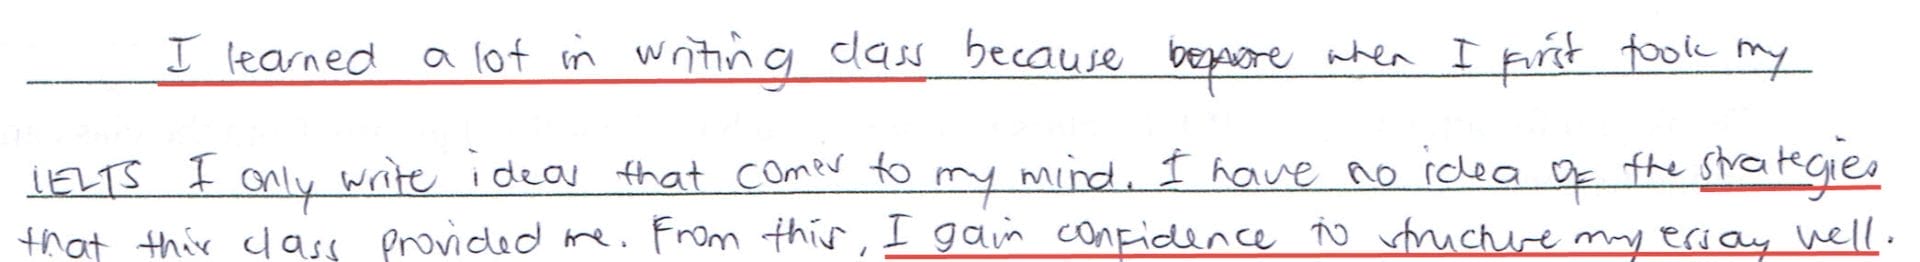 I learned a lot in writing class because before when I first took my
IELTS I only write ideas that comes to my mind. I have no idea of the strategies
that this class provided me. From this, I gain confidence to structure my essay well.